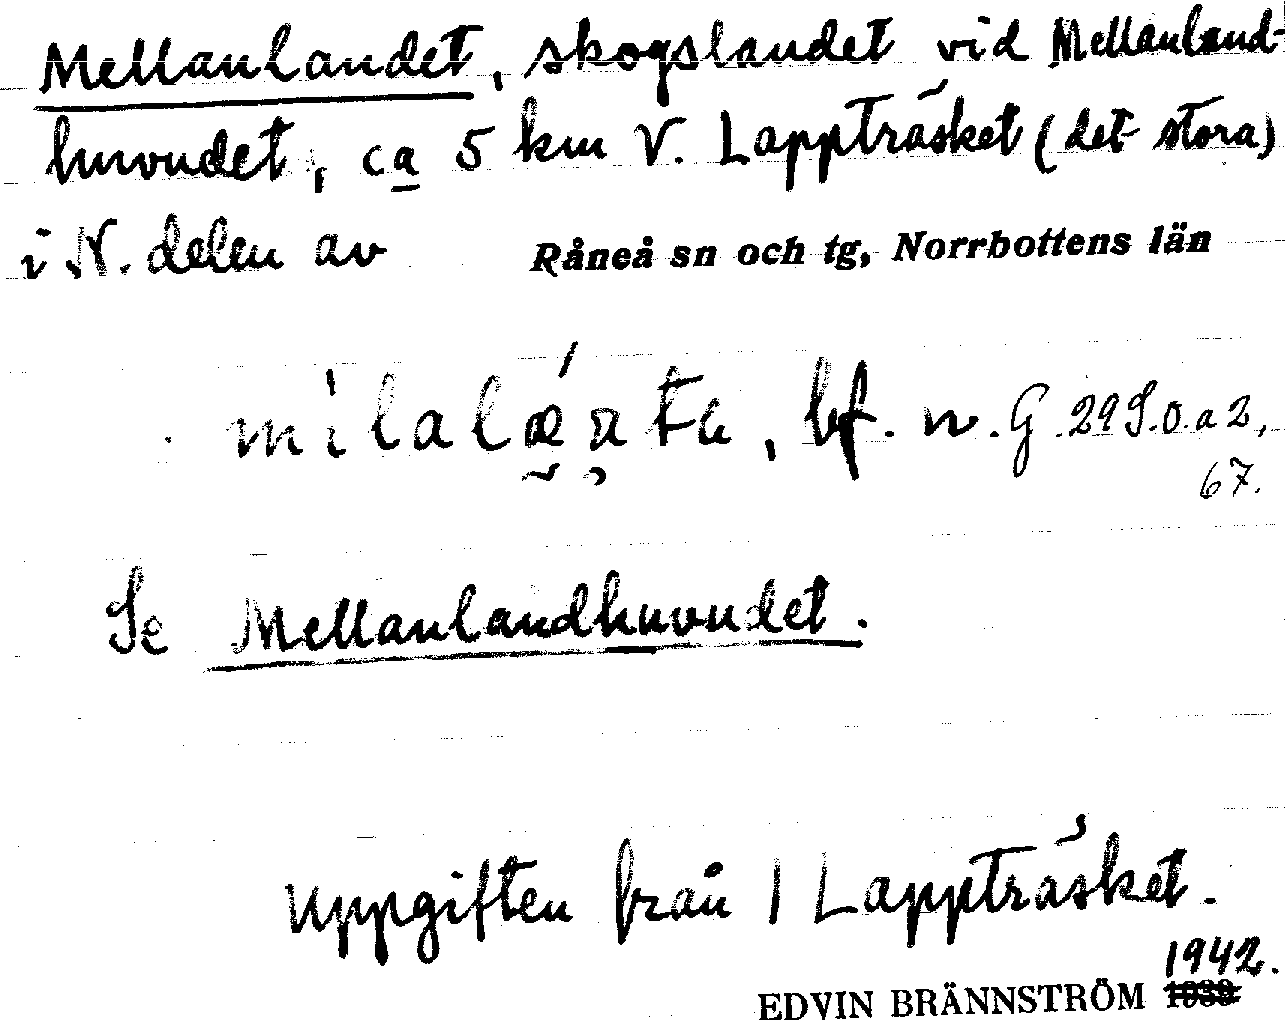 Mellanlandet, skogslandet vid Mellanland-
huvudet, ca 5 km V. Lappträsket (det stora)
i N. delen av Råneå sn och tg, Norrbottens län
bf. n. G. 29 S.O. a 2,
67.
Se Mellanlandhuvudet.
Uppgiften från 1 Lappträsket.
1942.
EDVIN BRÄNNSTRÖM 1939